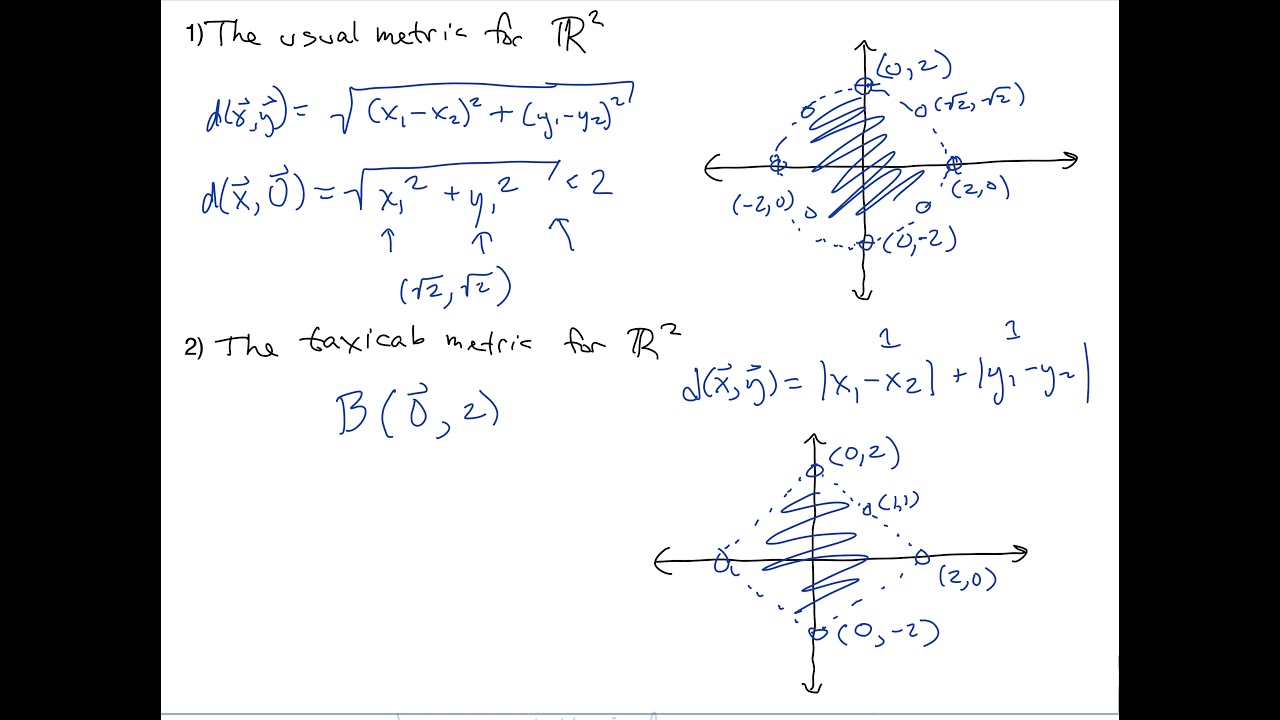 1) The usual metric for ℝ²
d(x⃗,y⃗) = √(x₁-x₂)² + (y₁-y₂)²
d(x⃗, 0⃗) = √x₁² + y₁² < 2
↑ ↑ ↖
(√2, √2)
(0, 2)
(√2, √2)
(-2, 0)
(2, 0)
(0, -2)
2) The taxicab metric for ℝ²
B(0⃗, 2)
1 1
d(x⃗, y⃗) = |x₁ - x₂| + |y₁ - y₂|
(0, 2)
(1,1)
(2, 0)
(0, -2)